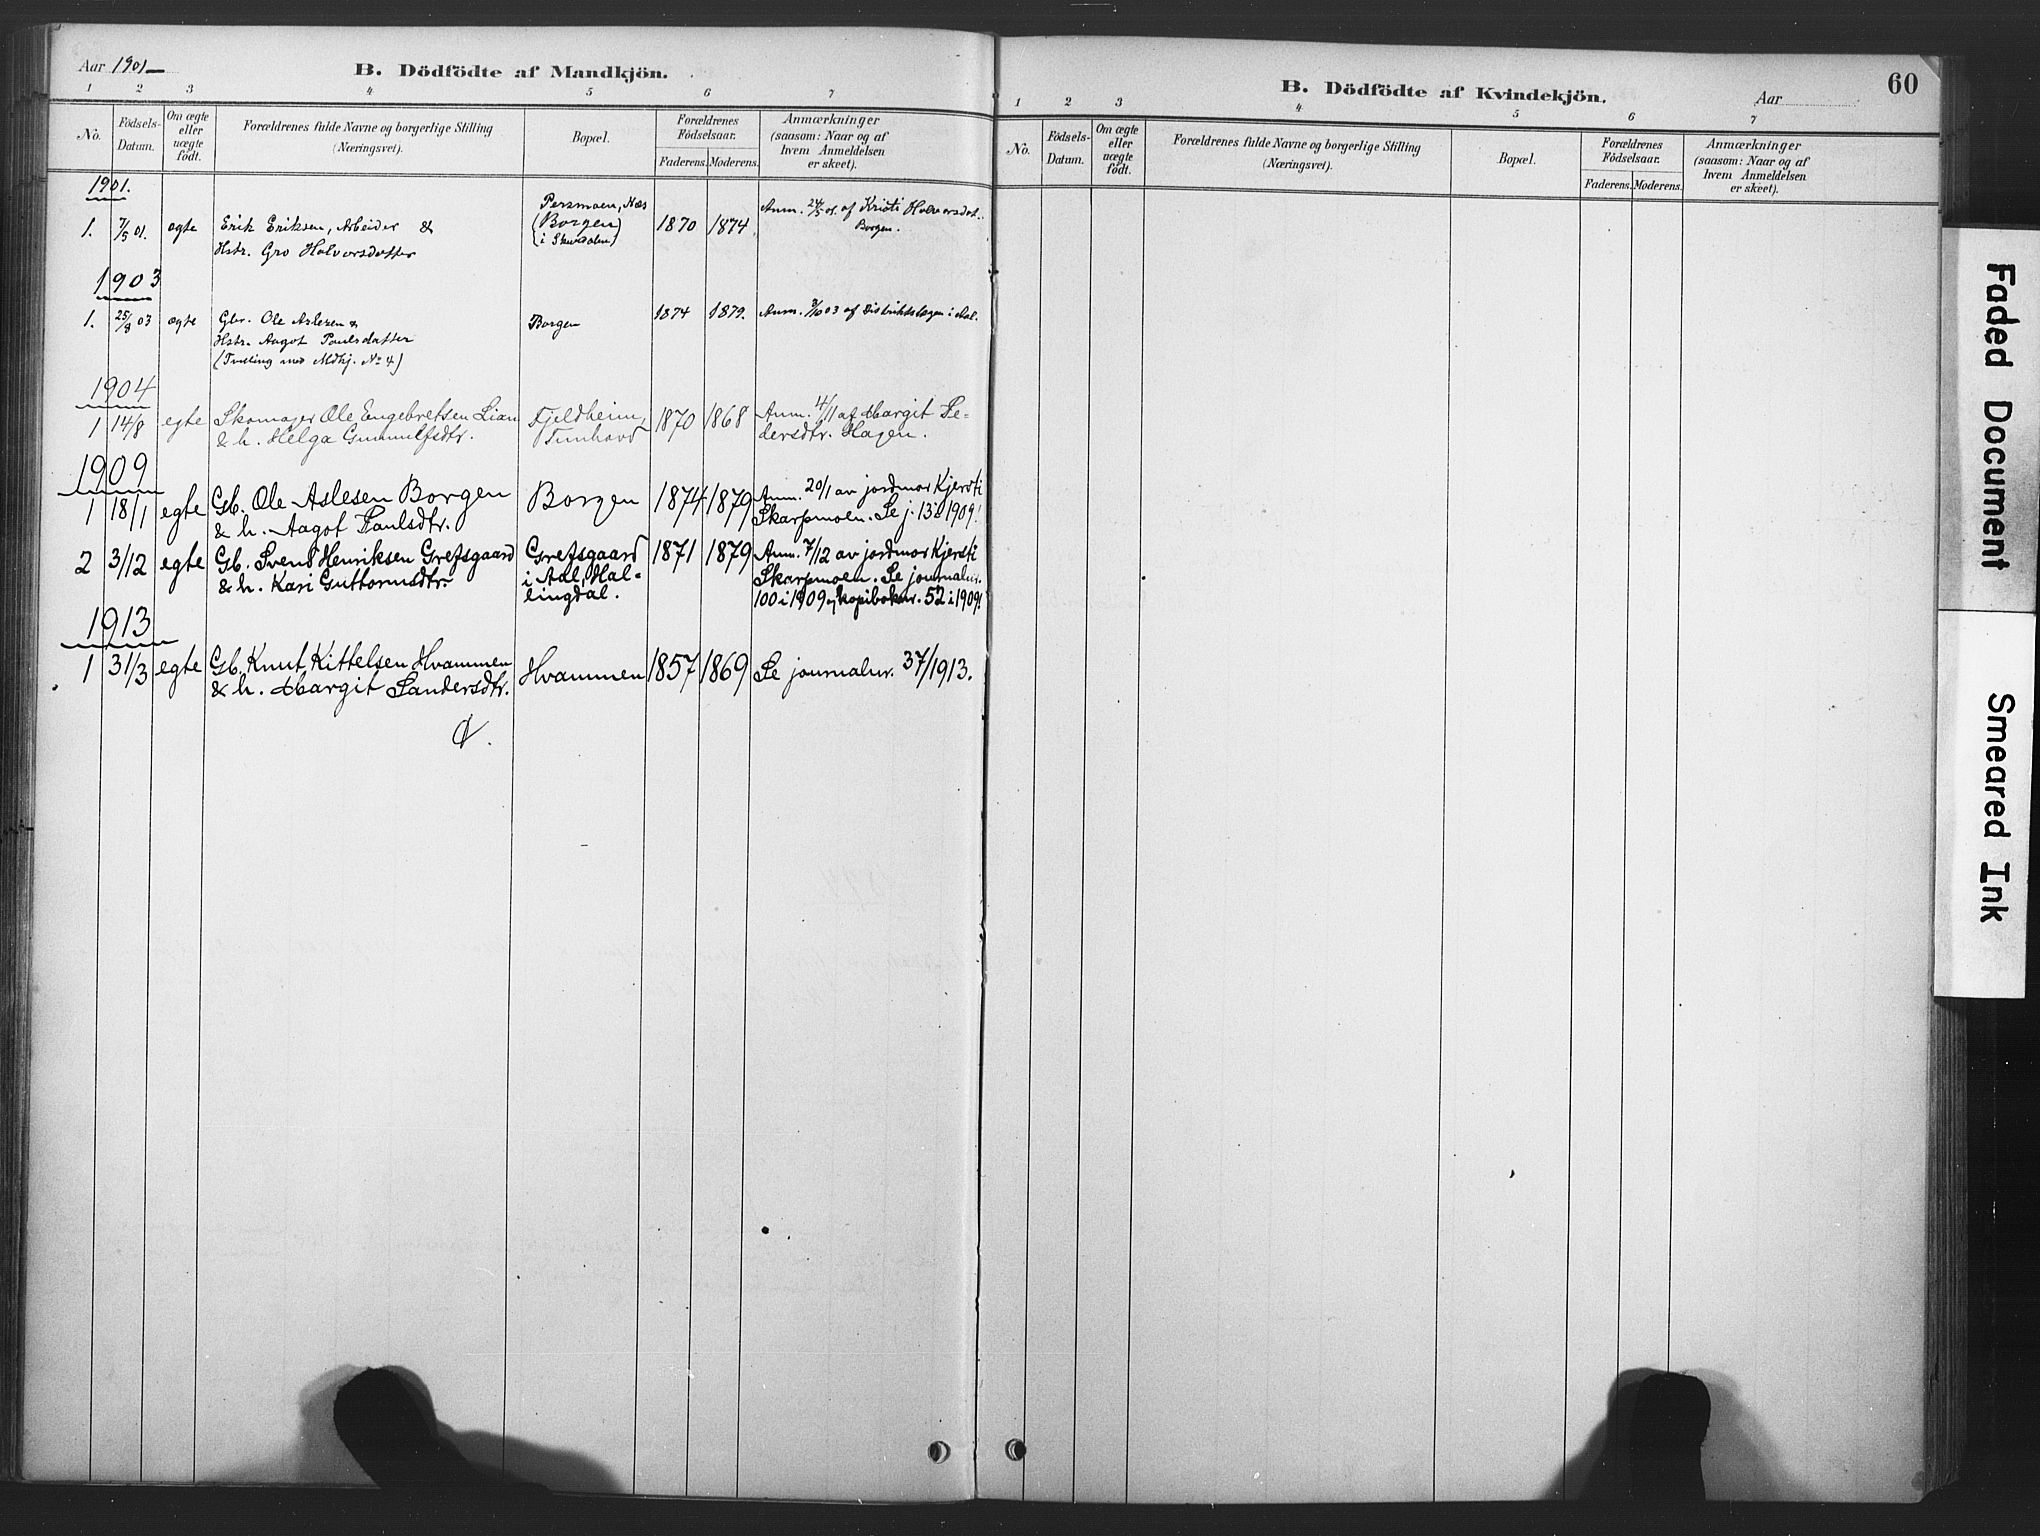 Aar 1901
B. Dödfödte af Mandkjön.
1 2 3 4 5 6 7
No.
Födsels-
Datum.
Om ægte
eller
uægte
født.
Forældrenes fulde Navne og borgerlige Stilling
(Næringsvei).
Bopæl.
Forældrenes
Födselsaar.
Faderens. Moderens.
Anmærkninger
(saasom: Naar og af
hvem Anmeldelsen
er skeet).
1901.
1. 7/5 01. egte Erik Eriksen, Arbeider &
Hstr. Gro Halvorsdatter
Persmoen, Næs
(Borgen)
(i Skurdalen)
1870 1874
Anm. 24/5 01. af Kristi Halvorsdat.
Borgen.
1903
1. 25/8 03 egte Gbr. Ole Aslesen &
Hstr. Aagot Paulsdatter
(Tvilling med Mdkj. No 4)
Borgen
1874 1879.
Anm. 3/10 03 af Distriktslægen i Aal.
1904
1 14/8 egte Skomager Ole Engebretsen Lian
& h. Helga Gunnulfsdtr.
Fjeldheim,
Tunhovd
1870 1868
Anm. 4/11 af Margit Pe-
dersdtr. Hagen.
1909
1 18/1 egte Gb. Ole Aslesen Borgen
& h. Aagot Paulsdtr.
Borgen
1874 1879
Anm. 20/1 av jordmor Kjersti
Skarpmoen. Se j. 13 i 1909!
2 3/12 egte Gb. Svend Henriksen Grefsgaard
& h. Kari Guttormsdtr.
Grefsgaard
i Aal, Hal-
lingdal.
1871 1879
Anm. 7/12 av jordmor Kjersti
Skarpmoen. Se journalnr.
100 i 1909 og kopiboknr. 52 i 1909!
1913
1 31/3 egte Gb. Knut Kittelsen Hvammen
& h. Margit Sandersdtr.
Hvammen
1857 1869
Se journalnr. 37/1913.
B. Dödfödte af Kvindekjön.
Aar
60
1 2 3 4 5 6 7
No.
Födsels-
Datum.
Om ægte
eller
uægte
födt.
Forældrenes fulde Navne og borgerlige Stilling
(Næringsvei).
Bopæl.
Forældrenes
Födselsaar.
Faderens. Moderens.
Anmærkninger
(saasom: Naar og af
hvem Anmeldelsen
er skeet).
Faded Document
Smeared Ink